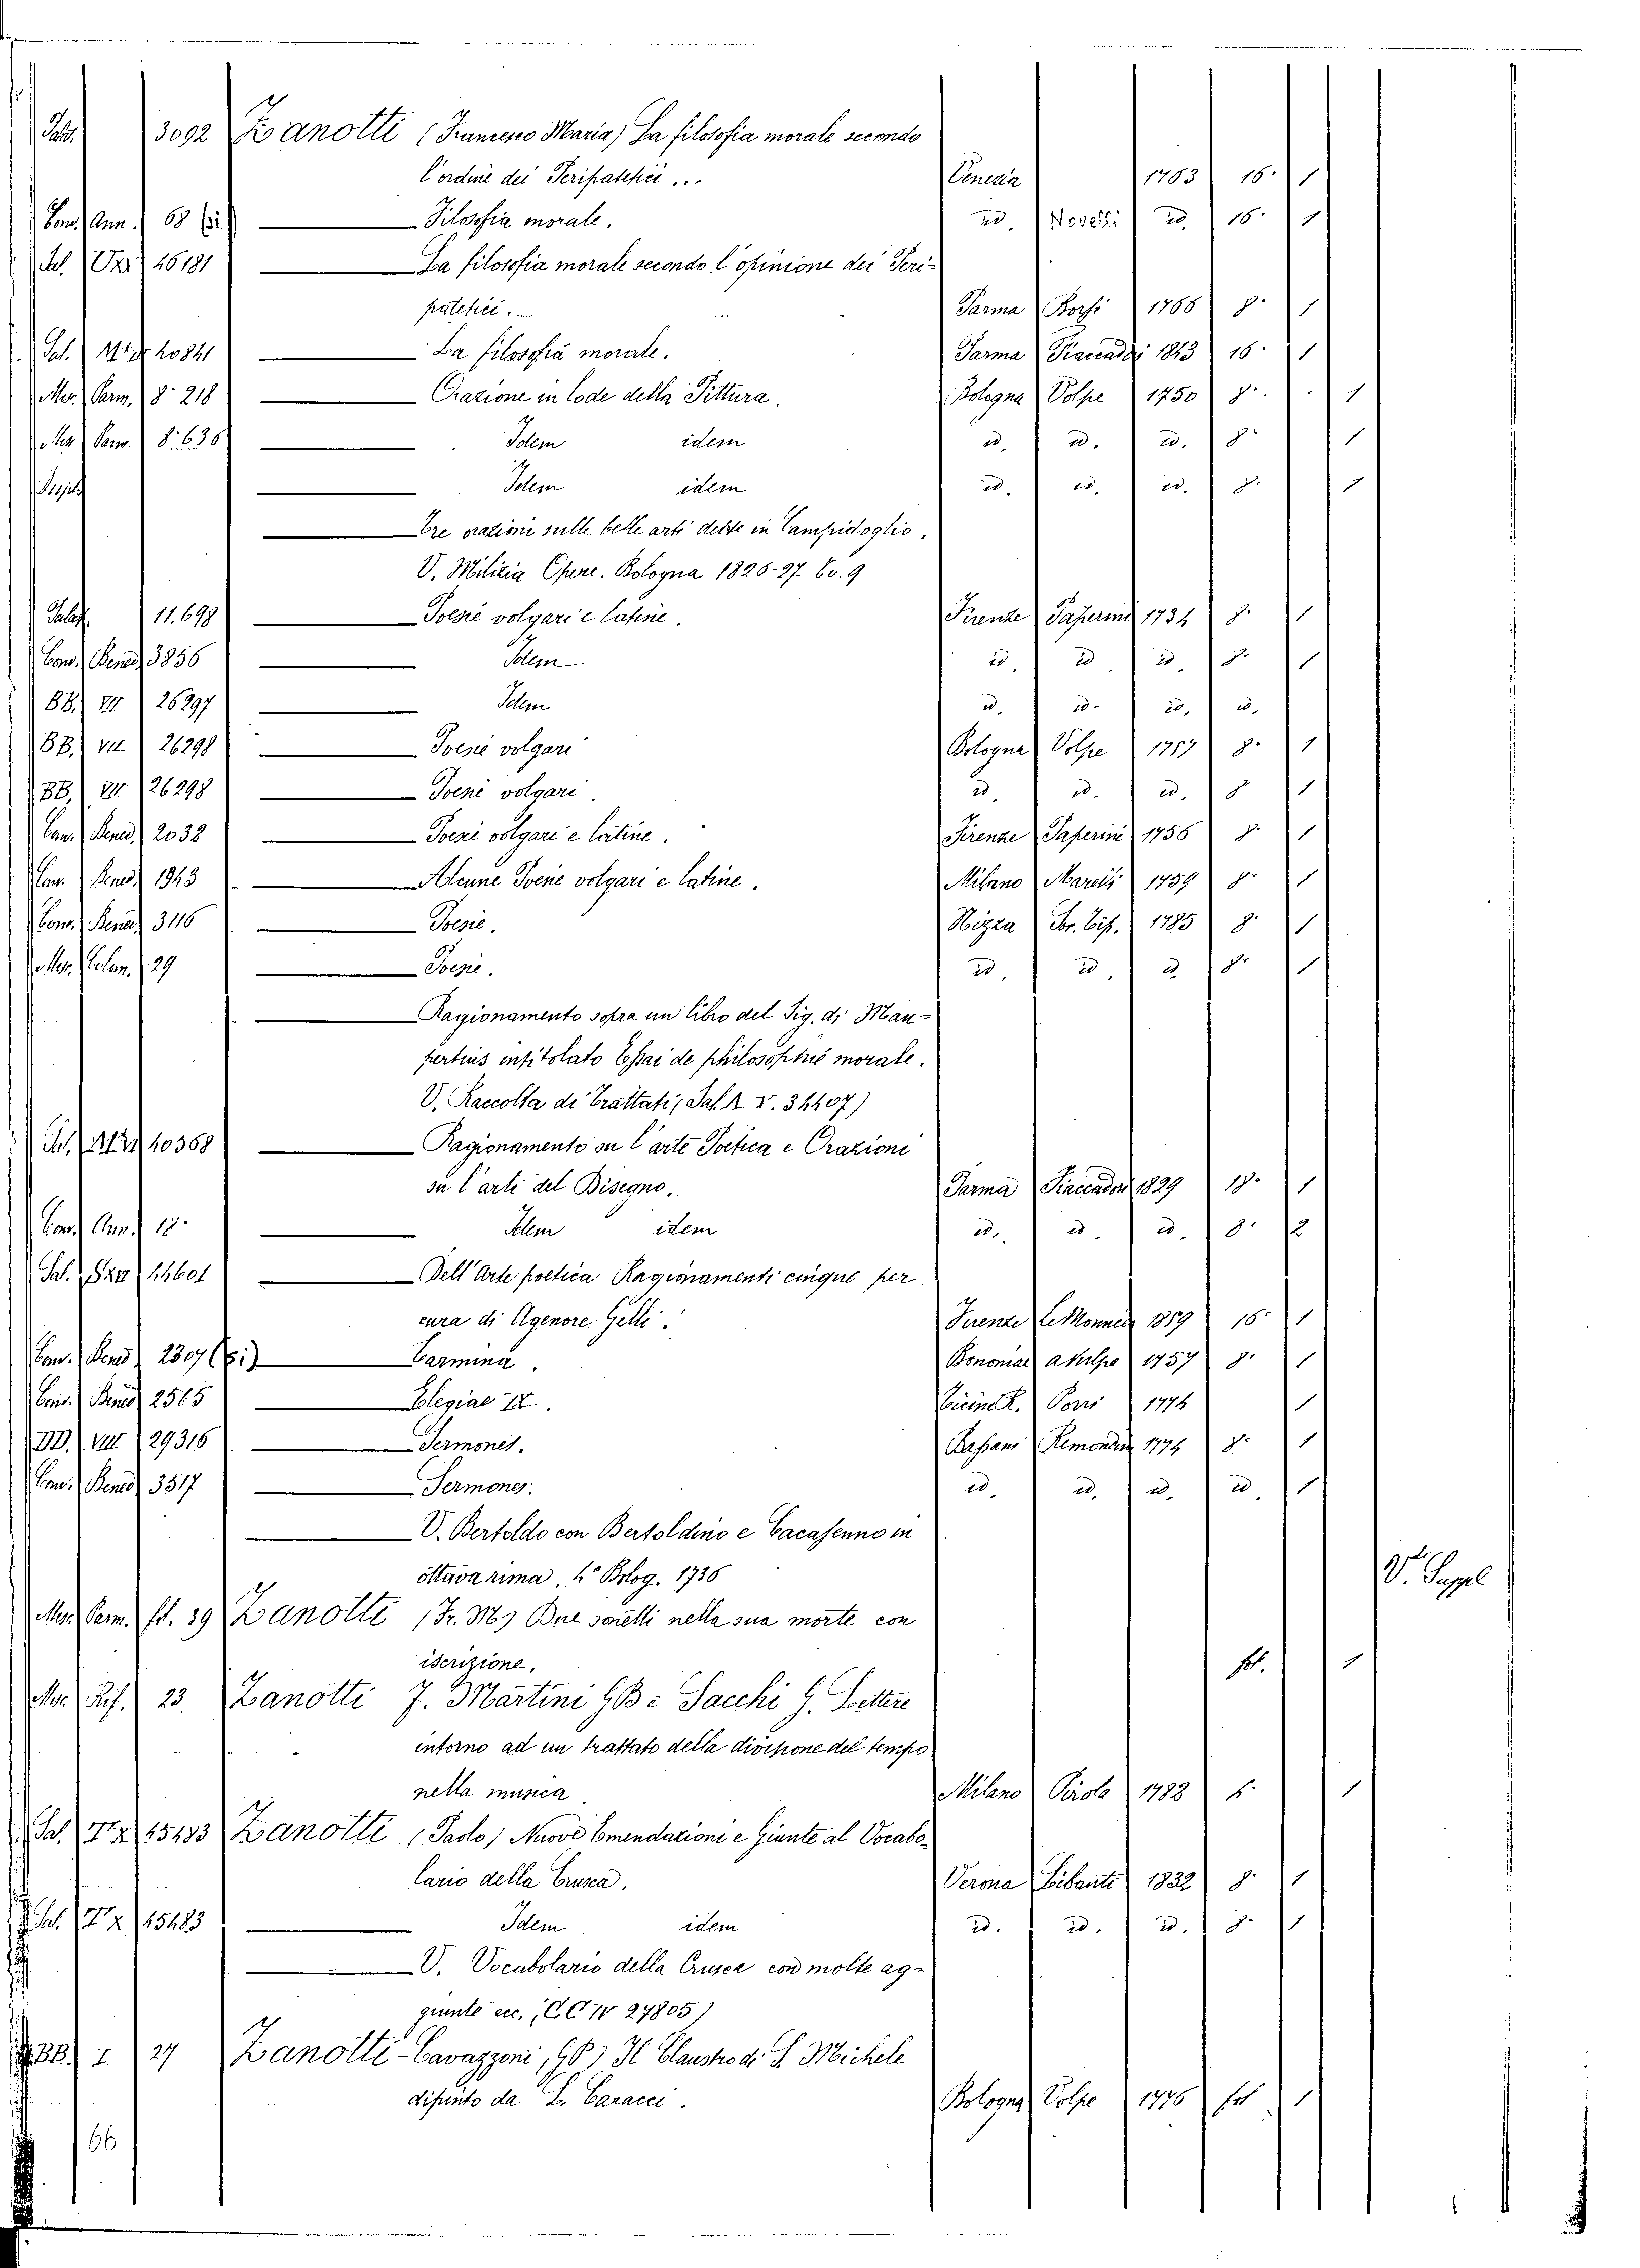 3092 Zanotti (Francesco Maria) La filosofia morale secondo
l'ordine dei Peripatetici ... Venezia 1763 16. 1
Conv. Ann. 68 (bis) Filosofia morale. id. Novelli id. 16. 1
Pal. 16181 La filosofia morale secondo l'opinione dei Peri-
patetici ..... Parma Borsi 1766 8. 1
Pal. 10841 La filosofia morale. Parma Fiaccadori 1843 16. 1
Mis. Parm. 8. 218 Orazione in lode della Pittura. Bologna Volpe 1750 8. 1
Mis. Parm. 8. 636 Idem idem id. id. id. 8. 1
Idem idem id. id. id. 8. 1
Tre orazioni sulle belle arti dette in Campidoglio.
V. Milizia Opere. Bologna 1826-27 to. 9
Palat. 11.698 Poesie volgari e latine. Firenze Paperini 1734 8. 1
Conv. Bened. 3856 Idem id. id id. 8. 1
BB. VII. 26297 Idem id. id. id. id.
BB. VII 26298 Poesie volgari Bologna Volpe 1757 8. 1
BB. VII 26298 Poesie volgari. id. id. id. 8 1
Conv. Bened. 2038 Poesie volgari e latine. Firenze Paperini 1756 8. 1
Conv. Bened. 1943 Alcune Poesie volgari e latine. Milano Marelli 1759 8. 1
Conv. Bened. 3116 Poesie. Nizza Soc. Tip. 1785 8. 1
Mis. 29 Poesie. id. id. id. 8. 1
Ragionamento sopra un libro del Sig. di Mau-
pertuis intitolato Essai de philosophie morale.
V. Raccolta di Trattati, Sal. A V. 34407)
10368 Ragionamento su l'arte Poetica e Orazioni
su l'arti del Disegno. Parma Fiaccadori 1829 18. 1
Conv. Ann. 18. Idem idem id. id. id. 8. 2
Sal. 14601 Dell'Arte poetica Ragionamenti cinque per
cura di Agenore Gelli. Firenze Le Monnier 1859 16. 1
Conv. Bened. 2307 (bis) Carmina. Bononiae a Vulpe 1757 8. 1
Conv. Bened. 2565 Elegiae IV. Ticini R. Porri 1774 1
DD. VIII 29316 Sermones. Bassani Remondini 1774 8. 1
Conv. Bened. 3517 Sermones. id. id. id. id. 1
V. Bertoldo con Bertoldino e Cacasenno in
ottava rima, 4° Bolog. 1736 V. Suppl
Mis. Parm. fol. 39 Zanotti (Fr. M.) Due sonetti nella sua morte con
iscrizione. fol. 1
Mis. Rif. 23. Zanotti F. Martini GB e Sacchi G. Lettere
intorno ad un trattato della divisione del tempo
nella musica. Milano Pirola 1782 4. 1
Sal. 15483 Zanotti (Paolo) Nuove Emendazioni e Giunte al Vocabo-
lario della Crusca. Verona Libanti 1832 8. 1
Sal. 15483 Idem idem id. id. id. 8. 1
V. Vocabolario della Crusca con molte ag-
giunte ecc., (CC IV 27805)
BB. I 27 Zanotti-Cavazzoni, G.P.) Il Claustro di S. Michele
dipinto da L. Caracci. Bologna Volpe 1776 fol 1
66